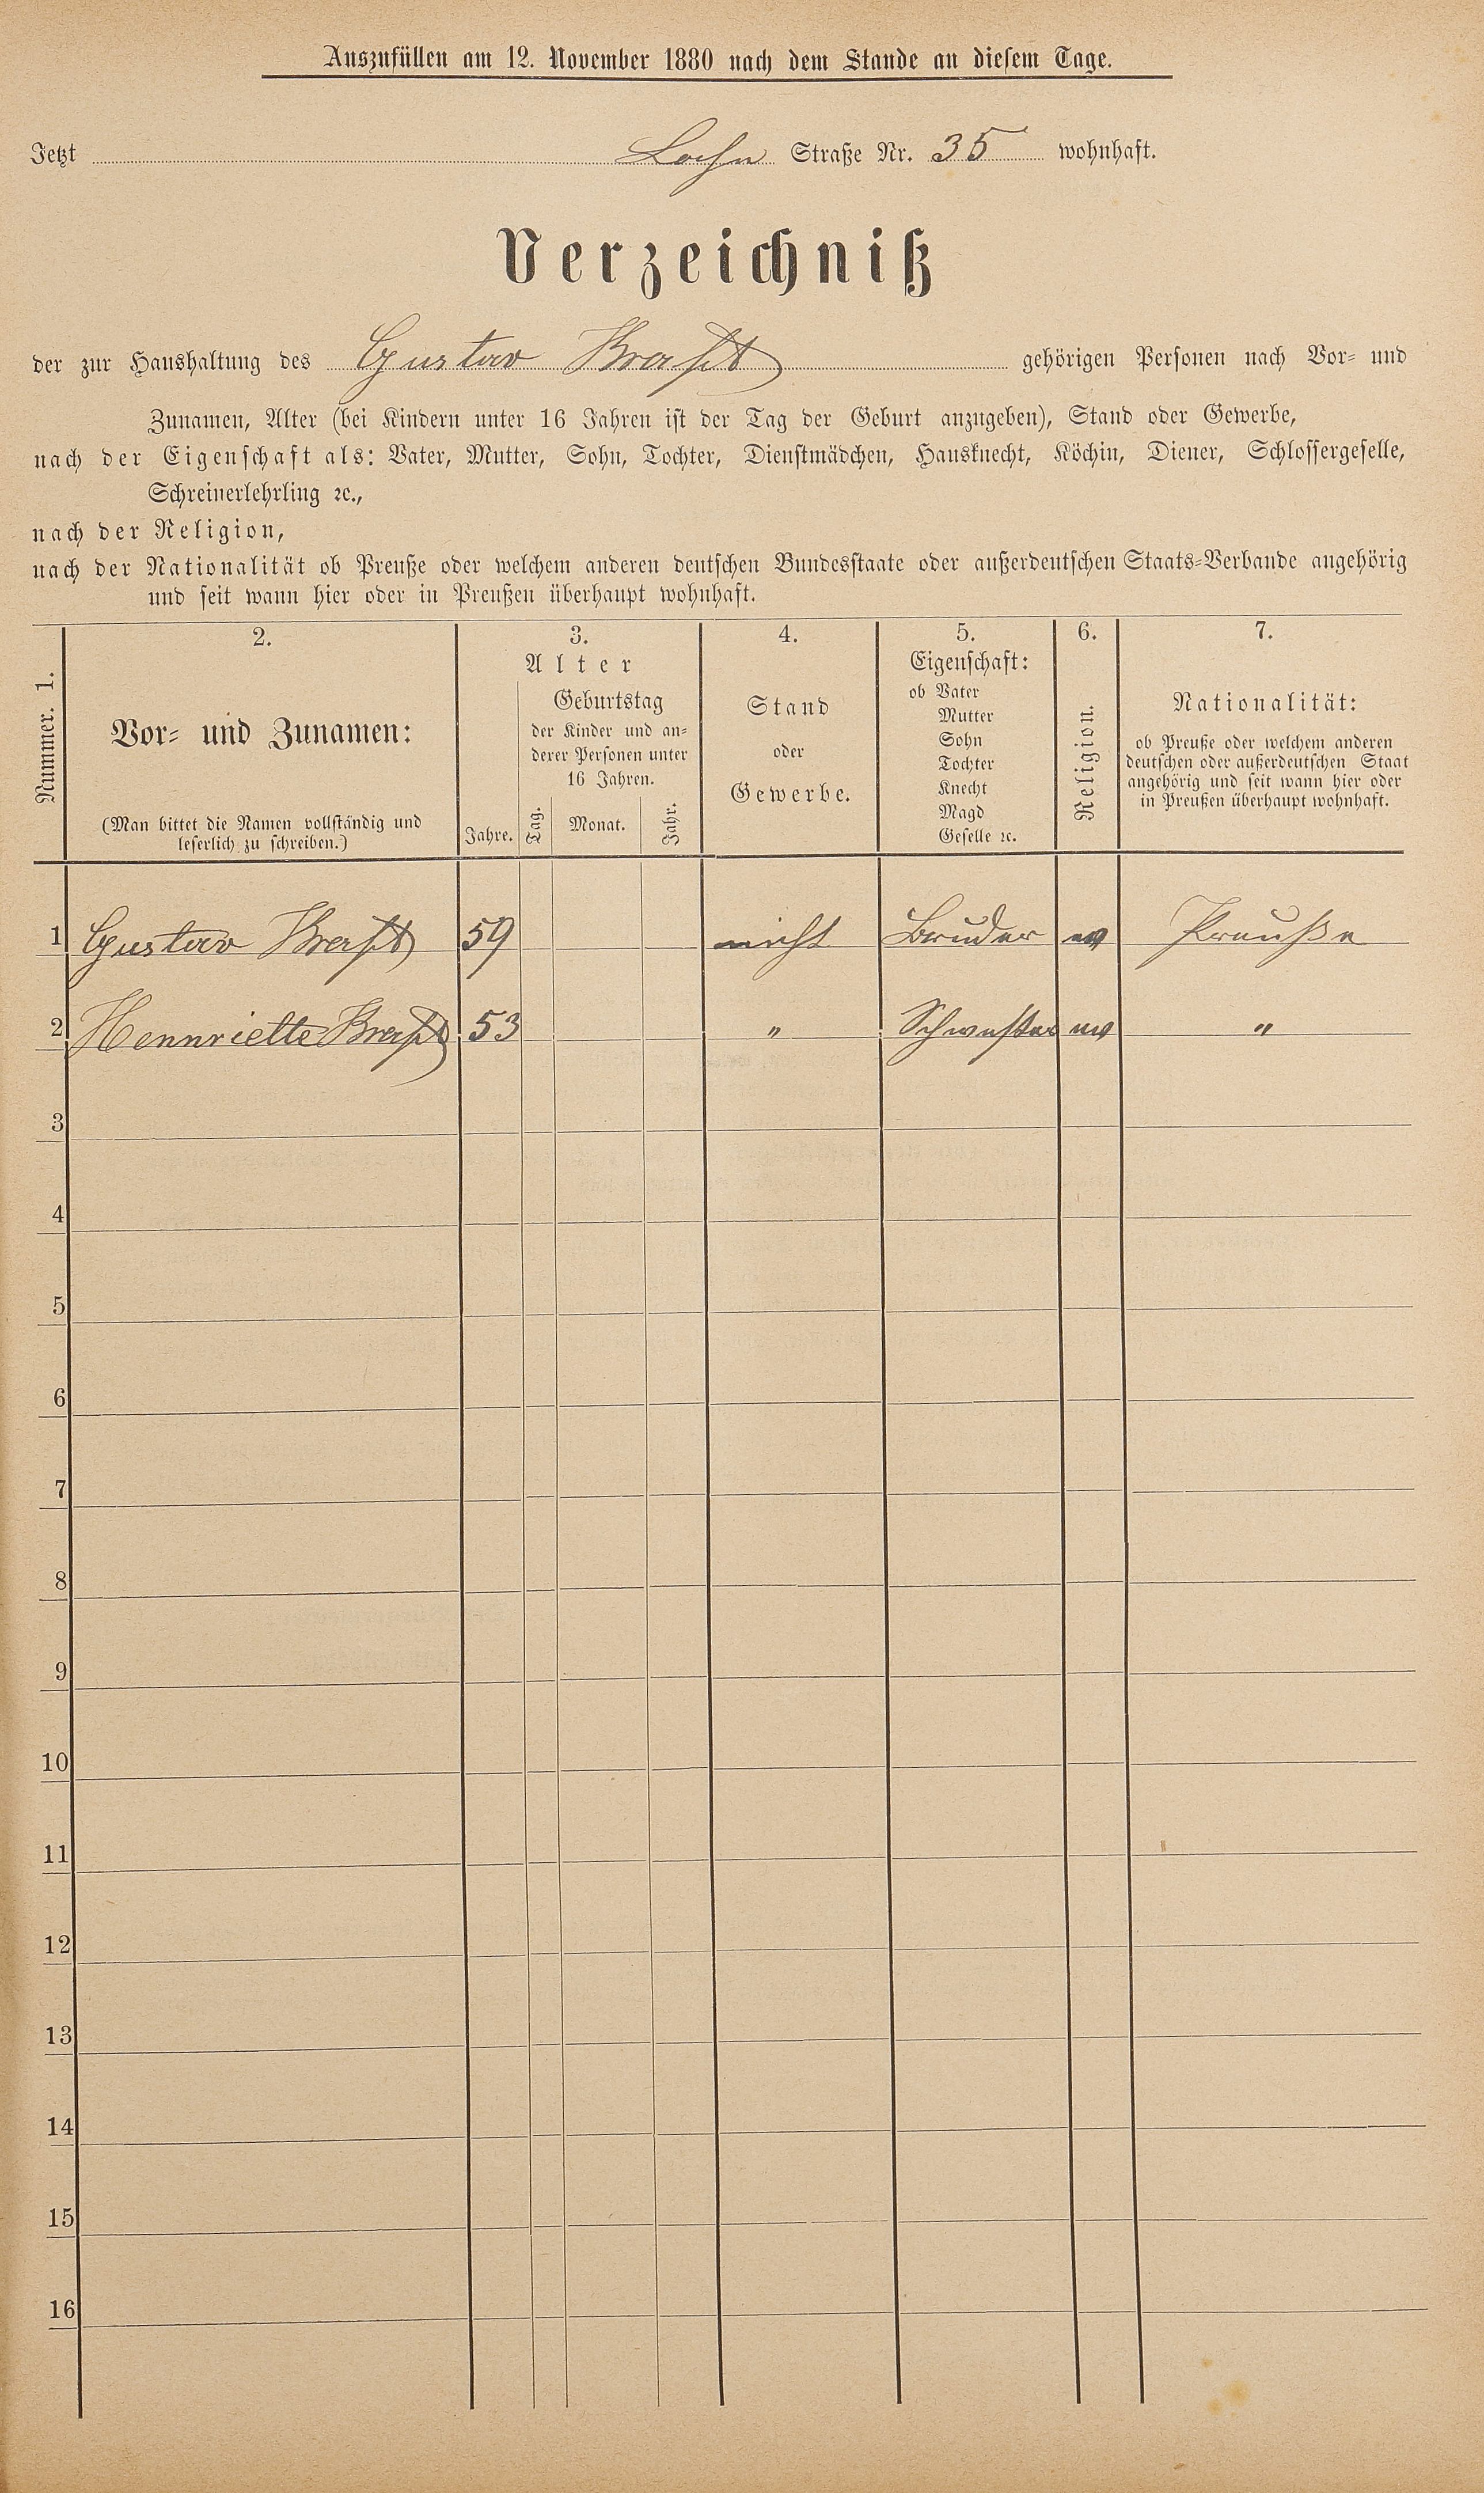 Auszufüllen am 12. November 1880 nach dem Stande an diesem Tage.
Jetzt Lohn Straße Nr. 35 wohnhaft.
Verzeichniß
der zur Haushaltung des Gustav Kraft gehörigen Personen nach Vor- und
Zunamen, Alter (bei Kindern unter 16 Jahren ist der Tag der Geburt anzugeben), Stand oder Gewerbe,
nach der Eigenschaft als: Vater, Mutter, Sohn, Tochter, Dienstmädchen, Hausknecht, Köchin, Diener, Schlossergeselle,
Schreinerlehrling ꝛc.,
nach der Religion,
nach der Nationalität ob Preuße oder welchem anderen deutschen Bundesstaate oder außerdeutschen Staats-Verbande angehörig
und seit wann hier oder in Preußen überhaupt wohnhaft.
Nummer. 1.
2.
Vor- und Zunamen:
(Man bittet die Namen vollständig und
leserlich zu schreiben.)
3.
Alter
Jahre.
Geburtstag
der Kinder und an-
derer Personen unter
16 Jahren.
Tag.
Monat.
Jahr.
4.
Stand
oder
Gewerbe.
5.
Eigenschaft:
ob Vater
Mutter
Sohn
Tochter
Knecht
Magd
Geselle ꝛc.
6.
Religion.
7.
Nationalität:
ob Preuße oder welchem anderen
deutschen oder außerdeutschen Staat
angehörig und seit wann hier oder
in Preußen überhaupt wohnhaft.
1 Gustav Kraft 59 nicht Bruder ev Preuße
2 Hennriette Kraft 53 " Schwester ev "
3
4
5
6
7
8
9
10
11
12
13
14
15
16